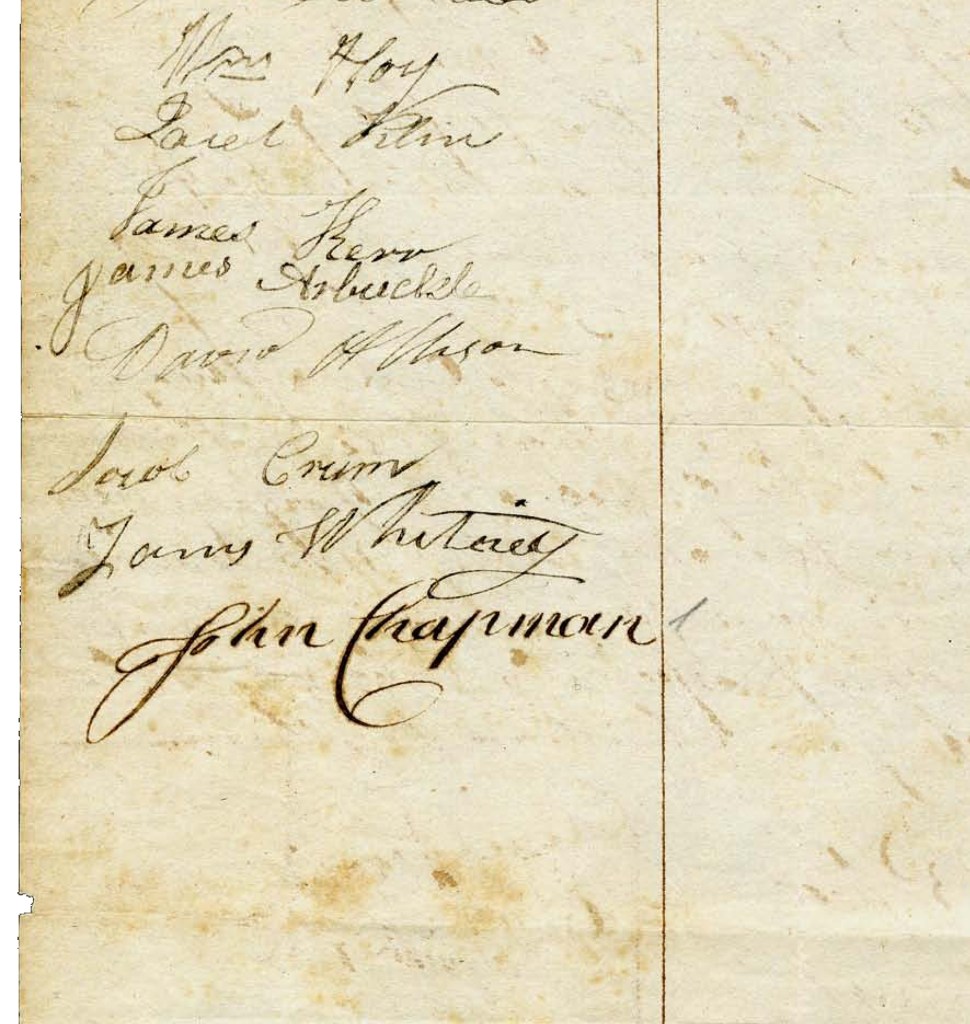 Wms Hoy
James Kerr
James Arbuckle
David Allison
Jacob Crum
James Whitney
John Chapman